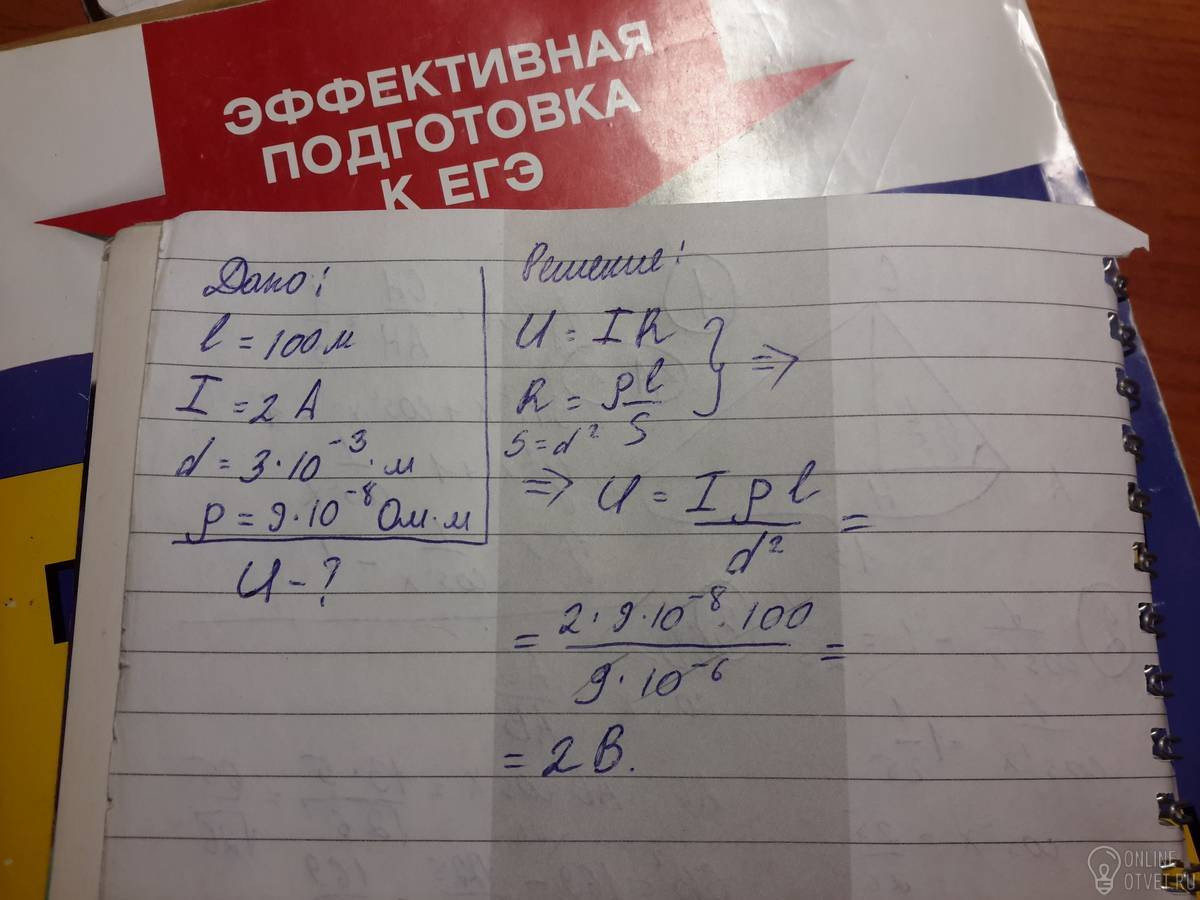 ЭФФЕКТИВНАЯ
ПОДГОТОВКА
К ЕГЭ
Дано:
l = 100 м
I = 2 А
d = 3·10⁻³·м
ρ = 9·10⁻⁸ Ом·м
U - ?
Решение:
U = IR
R = ρl/S } =>
S = d²
=> U = Iρl/d² =
= 2·9·10⁻⁸·100/9·10⁻⁶ =
= 2 В.
ONLINE
OTVET.RU